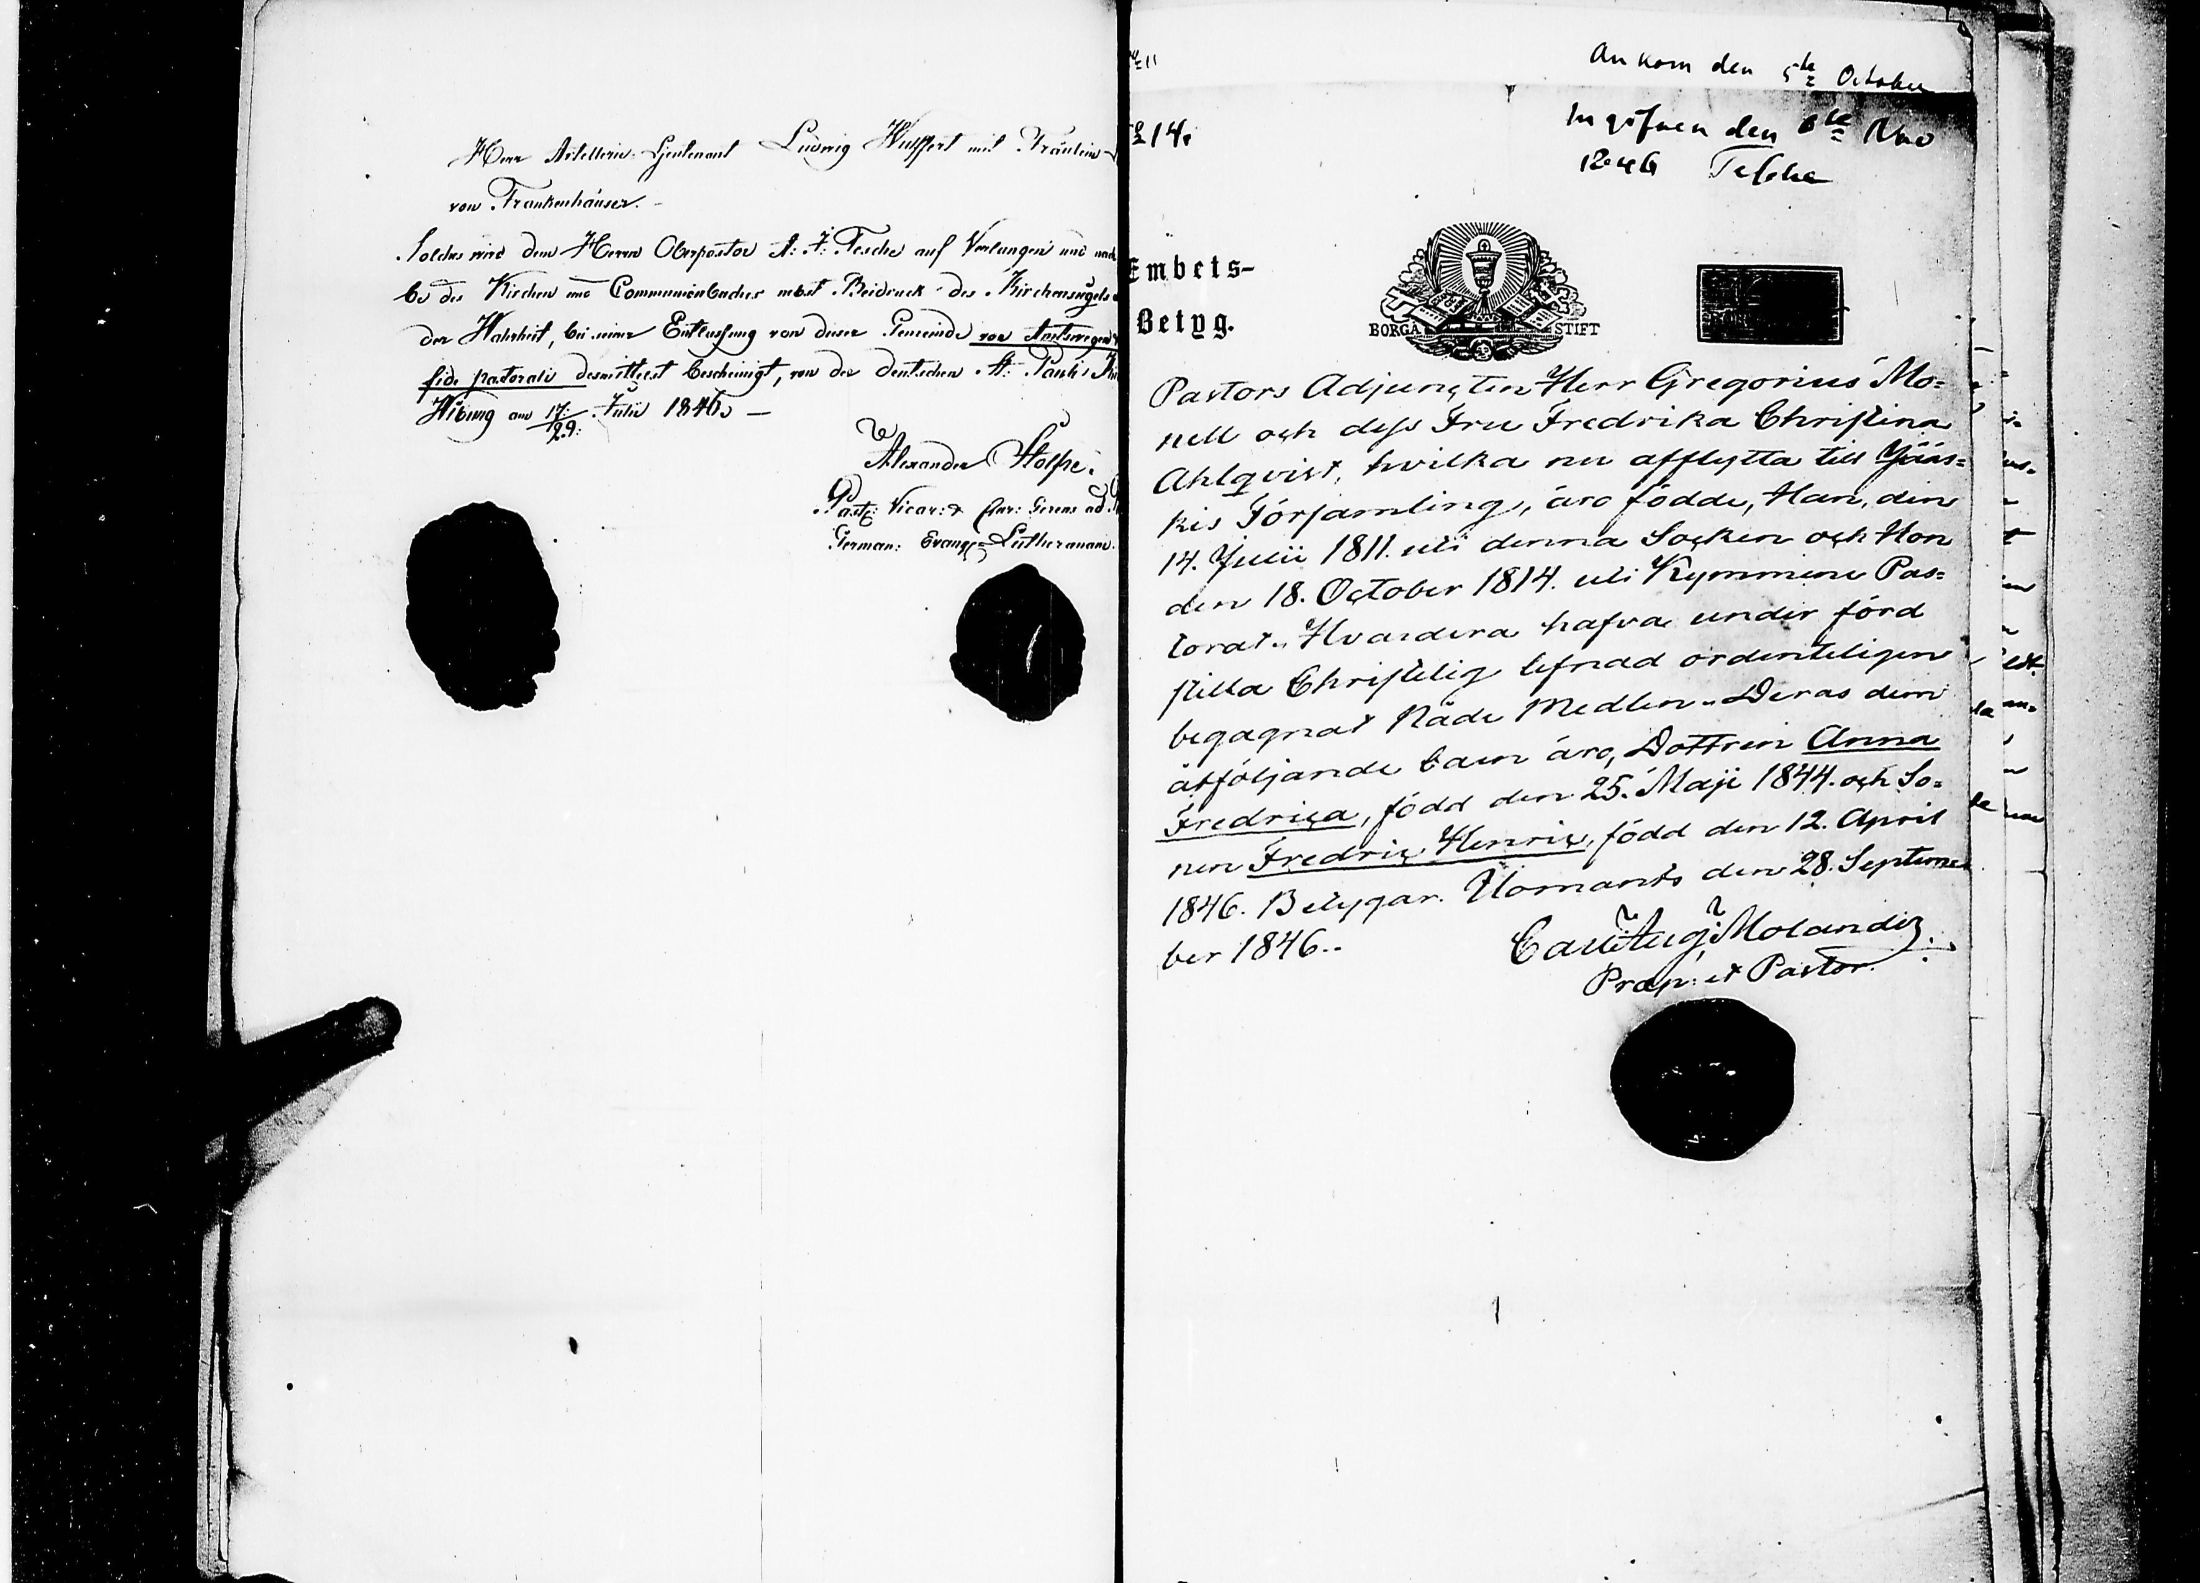 Herr Artillerie-Lieutenant Ludwig Wulffert mit Fräulein
von Frankenhäuser.
Solches wird dem Herrn Oberpastor A: F: Tesche auf Verlangen und nach
be des Kirchen und Communionbuches nebst Beidruck des Kirchensiegels
der Wahrheit, bei seiner Entlassung von dieser Gemeinde von Amtswegen
fide pastorali desmittelst bescheinigt, von der deutschen St: Pauli
Wiburg am 17/29: Julii 1846. —
Alexander Stolpe.
Past: Vicar: & Cur: Gerens ad
German: Evang: Lutheranam.
Ankom den 5te October
Ingifven den 6te Nov
1846 Tesche
14.
Embets-
Betyg.
BORGÅ STIFT
Pastors Adjuncten Herr Gregorius Mo=
nell och dess Fru Fredrika Christina
Ahlqvist, hvilka nu afflytta till Jääs=
kis Församling, äro födde, Han, den
14. Julii 1811. uti denna Socken och Hon
den 18. October 1814. uti Kymmene Pas=
torat. Hvardera hafva under förd
stilla Christelig lefnad ordenteligen
begagnat Nåde Medlen. Deras dem
åtföljande barn äro, Dottren Anna
Fredrica, född den 25. Maji 1844. och So=
nen Fredric Henric, född den 12. April
1846. Betygar. Ilomants den 28. Septem
ber 1846.
Carl Aug: Molander.
Præp: et Pastor.